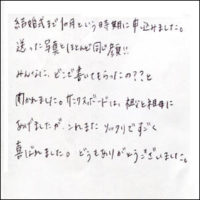 結婚式まで1ヶ月という時期に申込みました。
送った写真とほとんど同じ顔!!
みんなに、どこで書いてもらったの??と
聞かれました。サンクスボードは、親と祖母に
あげましたが、これまたソックリですごく
喜ばれました。どうもありがとうございました。